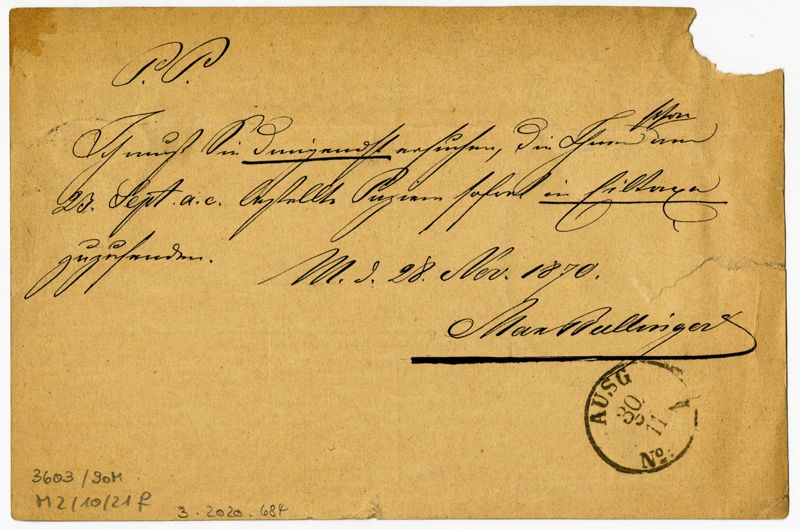 P. P.
schon
Ich muß Sie dringendst ersuchen, die Ihnen am
23. Sept. a. c. bestellte Papiere sofort in Eiltaxe
zuzusenden.
M. d. 28. Nov. 1870.
Max Bullinger
AUSG
30
11
No.
3603/90M
M2/10/21f
3.2020.684